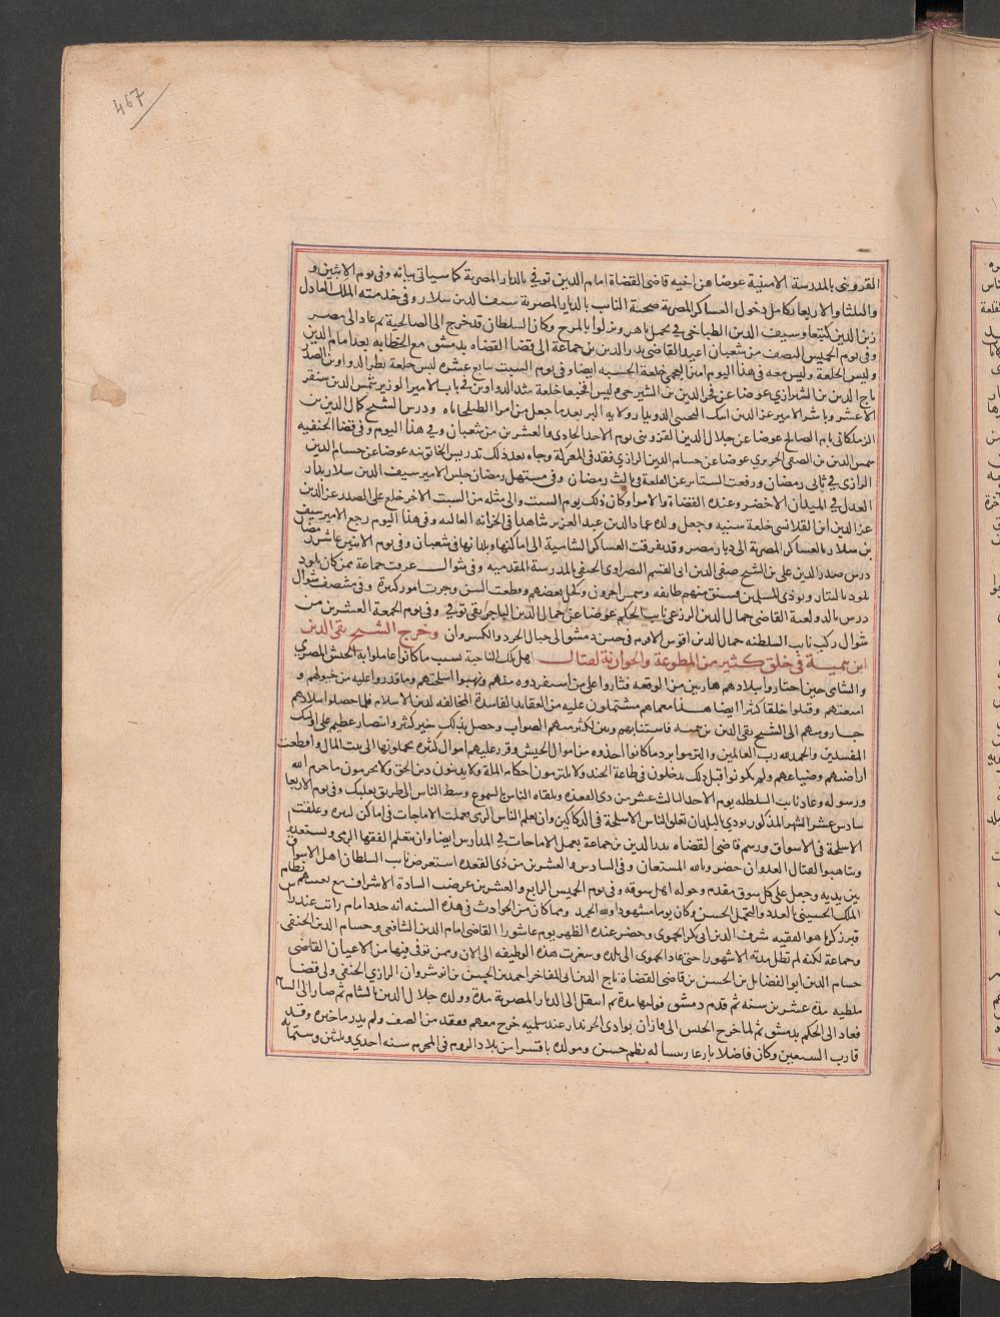 467
القزويني بالمدرسة الامينية عوضا عن اخيه قاضي القضاة امام الدين توفي بالديار المصرية كما سياتي بيانه وفي يوم الاثنين و
والثلثا والاربعا تكامل دخول العساكر المصرية صحبة النائب بالديار المصرية سيف الدين سلار وفي خدمته الملك العادل
زين الدين كتبغا وسيف الدين الطباخي في تجمل باهر ونزلوا بالمرج وكان السلطان قد خرج الى الصالحية ثم عاد الى مصر
وفي يوم الخميس النصف من شعبان اعيد القاضي بدر الدين بن جماعة الى قضا القضاه بدمشق مع الخطابه بعد امام الدين
ولبس الخلعة ولبس معه في هذا اليوم امين العجمي خلعة الحسبه ايضا وفي يوم السبت سابع عشره لبس خلعة نظر الدواوين
تاج الدين بن الشيرازي عوضا عن فخر الدين بن الشيرجي ولبس اقجبا خلعة شد الدواوين في باب الامير الوزير شمس الدين سنقر
الاعسر وباشر الامير عز الدين ايبك النجيبي الدويدار ولايه البر بعد ما جعل من امرا الطبلخاناه ودرس الشيخ كمال الدين بن
الزملكاني بام الصالح عوضا عن جلال الدين القزويني يوم الاحد الحادي والعشرين من شعبان وفي هذا اليوم ولي قضا الحنفيه
شمس الدين بن الصفي الحريري عوضا عن حسام الدين الرازي فقد في المعركة وجاه بعد ذلك تدريس الخاتونيه عوضا عن حسام الدين
الرازي في ثاني رمضان ورفعت الستاير عن القلعة في ثالث رمضان وفي مستهل رمضان جلس الامير سيف الدين سلار بدار
العدل في الميدان الاخضر وعنده القضاة والامرا وكان ذلك يوم السبت والى مثله من السبت الاخر خلع على الصدر عز الدين
عز الدين ابن القلانسي خلعة سنيه وجعل ولده عماد الدين عبد العزيز شاهدا في الخزانه العاليه وفي هذا اليوم رجع الامير سيف
بن سلار بالعساكر المصرية الى ديار مصر وقد تفرقت العساكر الشامية الى اماكنها وبلدانها في شعبان وفي يوم الاثنين عاشر رمضان
درس صدر الدين علي بن الشيخ صفي الدين ابي القسم البصراوي الحنفي بالمدرسة المقدميه وفي شوال عرفت جماعة ممن كان يلوذ
يلوذ بالتتار ويوذي المسلمين وشنق منهم طايفه وسمر اخرون وكحل بعضهم وقطعت السن وجرت امور كثيرة وفي منتصف شوال
درس بالدولعية القاضي جمال الدين الزرعي نايب الحكم عوضا عن جمال الدين الباجريقي توفي وفي يوم الجمعة العشرين من
شوال ركب نايب السلطنه جمال الدين اقوش الافرم في جيش دمشق الى جبال الجرد والكسروان وخرج الشيخ تقي الدين
ابن تيمية في خلق كثير من المطوعة والحوارنة لقتال اهل تلك الناحية بسبب ما كانوا عاملوا به الجيش المصري
والشامي حين اجتازوا ببلادهم هاربين من الوقعه فثاروا على من استفردوه منهم ونهبوا اسلحتهم وما قدروا عليه من خيولهم و
امتعتهم وقتلوا خلقا كثيرا ايضا هذا مع ما هم مشتملون عليه من العقايد الفاسدة المخالفه لدين الاسلام فلما حصلوا ببلادهم
جا روسهم الى الشيخ تقي الدين بن تيميه فاستتابهم وبين لكثير منهم الصواب وحصل بذلك خير كثير وانتصار عظيم على اوليك
المفسدين والحمد لله رب العالمين والتزموا برد ما كانوا اخذوه من اموال الجيش وقرر عليهم اموال كثيره يحملونها الى بيت المال واقطعت
اراضيهم وضياعهم ولم يكونوا قبل ذلك يدخلون في طاعة الجند ولا يلتزمون احكام الملة ولا يدينون دين الحق ولا يحرمون ما حرم الله
ورسوله وعاد نايب السلطنه يوم الاحد الثالث عشر من ذي القعده وتلقاه الناس بالشموع وسط الناس الى طريق بعلبك وفي يوم الاربعا
سادس عشر الشهر المذكور نودي بالبلدان تعلق الناس الاسلحة في الدكاكين وان يتعلم الناس الرمي فعملت الاماجات في اماكن كثيره وعلقت
الاسلحة في الاسواق ورسم قاضي القضاه بدر الدين بن جماعة بعمل الاماجات في المدارس ايضا وان يتعلم الفقها الرمي ويستعدوا
ويتاهبوا لقتال العدو ان حضر وبالله المستعان وفي السادس والعشرين من ذي القعده استعرض نايب السلطان اهل الاسواق
بين يديه وجعل على كل سوق مقدم وحوله اهل سوقه وفي يوم الخميس الرابع والعشرين عرضت السادة الاشراف مع نقيبهم نظام
الملك الحسيني بالعدد والتجمل الحسن وكان يوما مشهودا ولله الحمد ومما كان من الحوادث في هذه السنه انه جدد امام راتب عند راس
قبر زكريا وهو الفقيه شرف الدين ابي بكر الحموي وحضر عنده الظهر يوم عاشورا القاضي امام الدين الشافعي وحسام الدين الحنفي
وجماعة لكنه لم تطل مدته الا شهورا حتى عاد الحموي الى بلده وشغرت هذه الوظيفه الى الان وممن توفي فيها من الاعيان القاضي
حسام الدين ابو الفضايل بن الحسن بن قاضي القضاة تاج الدين ابي المفاخر احمد بن الحسن بن انوشروان الرازي الحنفي ولي قضا
ملطيه مدة عشرين سنه ثم قدم دمشق فوليها مدة ثم انتقل الى الديار المصرية مدة وولده جلال الدين بالشام ثم صار الى الشام
فعاد الى الحكم بدمشق ثم لما خرج الجيش الى قازان بوادي الخزندار عند سلميه خرج معهم ففقد من الصف ولم يدر ما خبره وقد
قارب السبعين وكان فاضلا بارعا رئيسا له نظم حسن ومولده باقسرا من بلاد الروم في المحرم سنه احدي وثلثين وستمايه